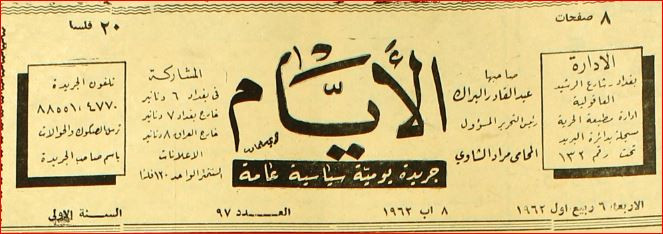 ٨ صفحات
٢٠ فلسا
الادارة
بغداد - شارع الرشيد
العاقولية
ادارة مطبعة الحرية
سجلة بدائرة البريد
تحت رقم ١٣٢
صاحبها
عبدالقادر البراك
رئيس التحرير المسؤول
المحامي مراد الشاوي
الأيام
جريدة يومية سياسية عامة
المشاركة
في بغداد ٦ دنانير
خارج بغداد ٧ دنانير
خارج العراق ٨ دنانير
الاعلانات
السنتمتر الواحد ١٢٠ فلسا
تلفون الجريدة
ترسل الصكوك والحوالات
باسم صاحب الجريدة
الاربعاء ٦ ربيع اول ١٩٦٢
٨ اب ١٩٦٢
العدد ٩٧
السنة الاولى